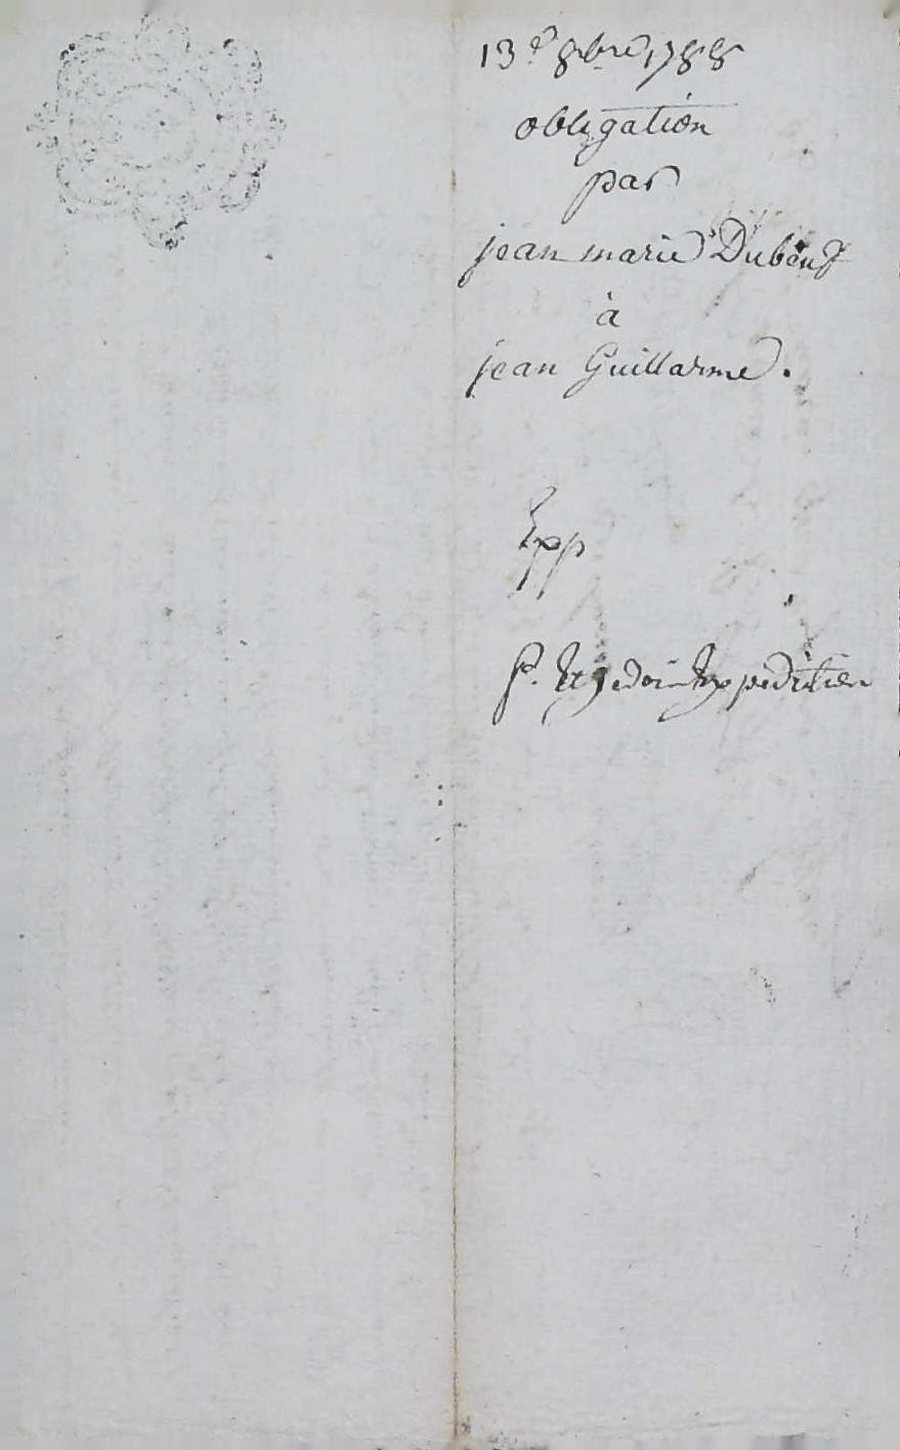 13e 8bre 1788
obligation
par
jean marie Dubeuf
à
jean Guillarme.
Expp
P. expedition